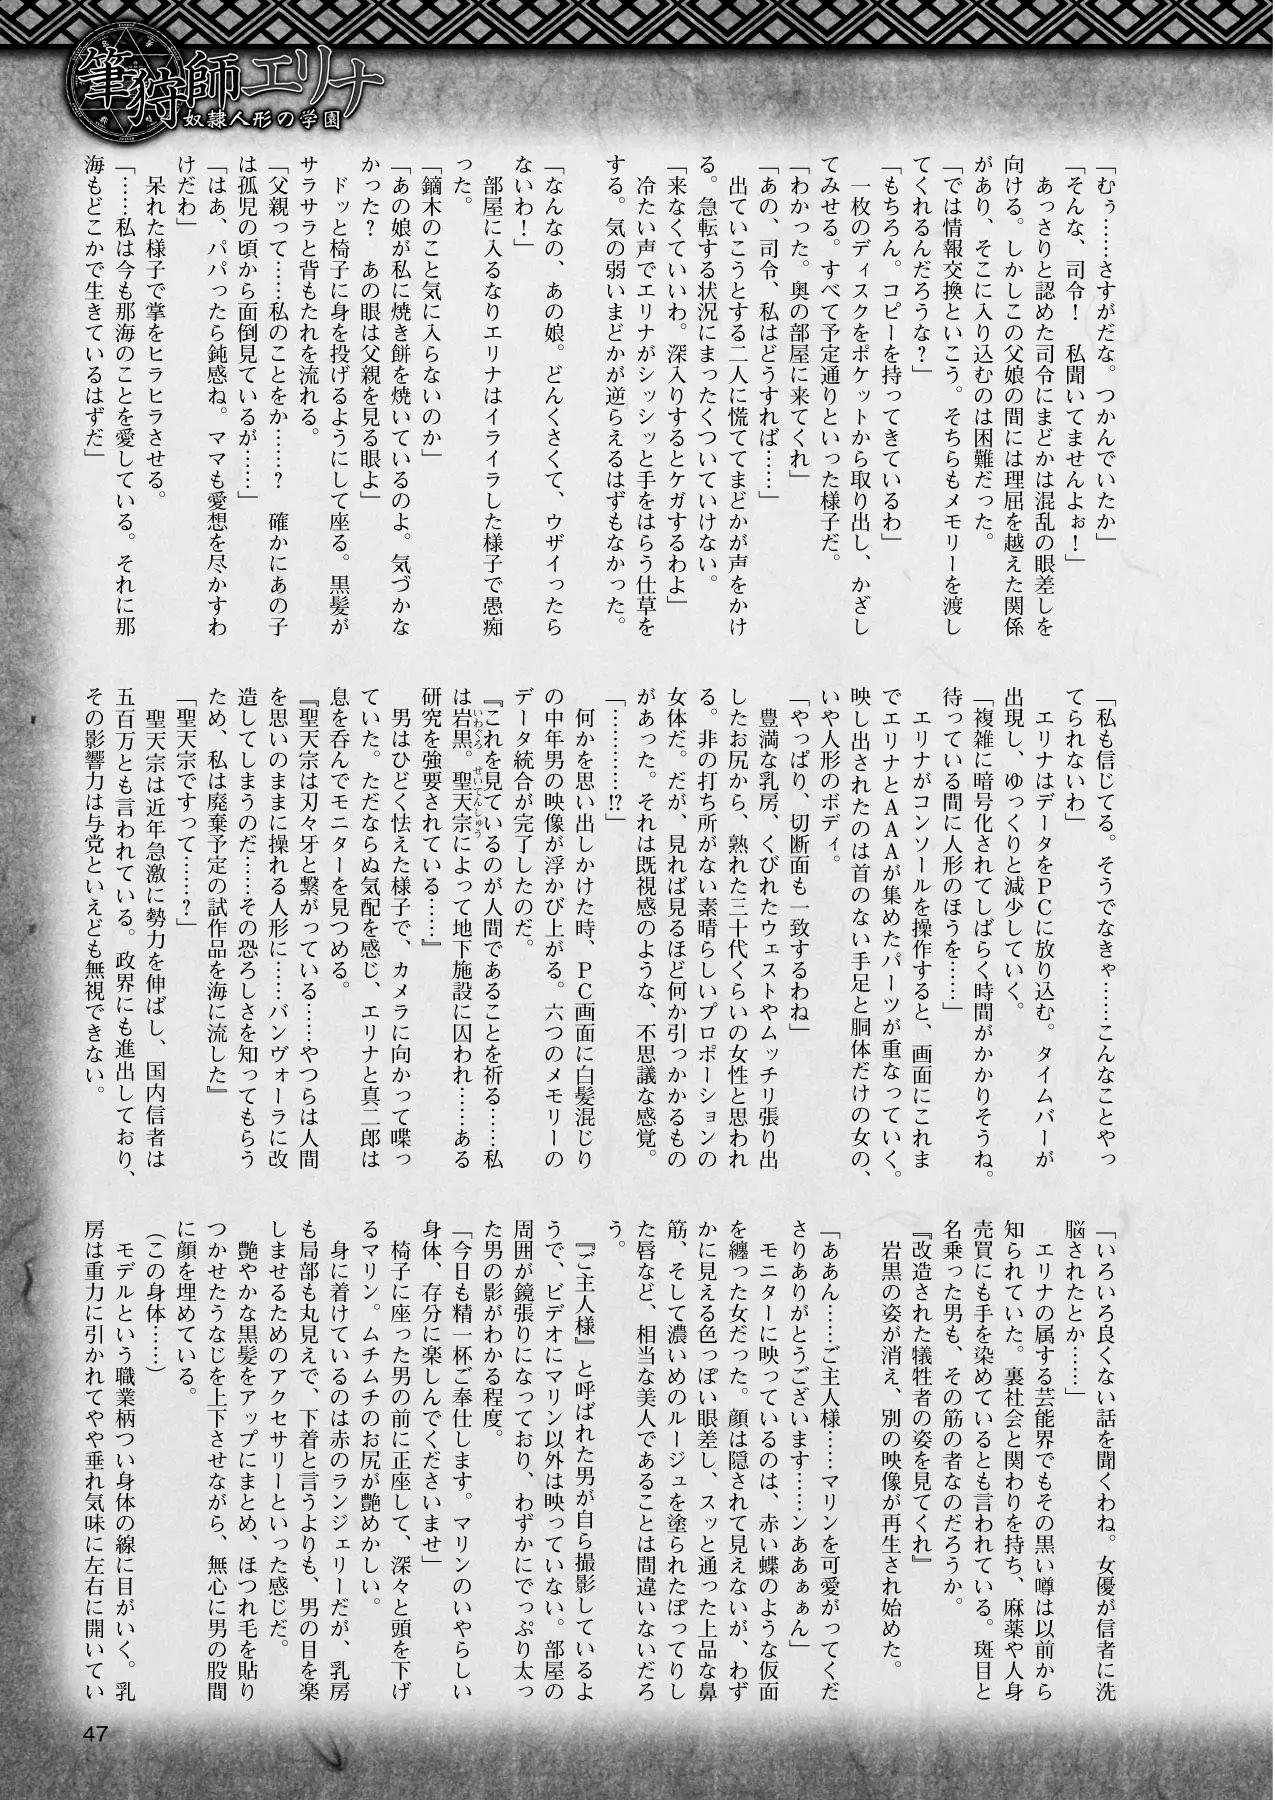 筆狩師エリナ
奴隷人形の学園
「むぅ……さすがだな。つかんでいたか」
「そんな、司令！　私聞いてませんよぉ！」
　あっさりと認めた司令にまどかは混乱の眼差しを
向ける。しかしこの父娘の間には理屈を越えた関係
があり、そこに入り込むのは困難だった。
「では情報交換といこう。そちらもメモリーを渡し
てくれるんだろうな？」
「もちろん。コピーを持ってきているわ」
　一枚のディスクをポケットから取り出し、かざし
てみせる。すべて予定通りといった様子だ。
「わかった。奥の部屋に来てくれ」
「あの、司令、私はどうすれば……」
　出ていこうとする二人に慌ててまどかが声をかけ
る。急転する状況にまったくついていけない。
「来なくていいわ。深入りするとケガするわよ」
　冷たい声でエリナがシッシッと手をはらう仕草を
する。気の弱いまどかが逆らえるはずもなかった。
「なんなの、あの娘。どんくさくて、ウザイったら
ないわ！」
　部屋に入るなりエリナはイライラした様子で愚痴
った。
「鏑木のこと気に入らないのか」
「あの娘が私に焼き餅を焼いているのよ。気づかな
かった？　あの眼は父親を見る眼よ」
　ドッと椅子に身を投げるようにして座る。黒髪が
サラサラと背もたれを流れる。
「父親って……私のことをか……？　確かにあの子
は孤児の頃から面倒見ているが……」
「はあ、パパったら鈍感ね。ママも愛想を尽かすわ
けだわ」
　呆れた様子で掌をヒラヒラさせる。
「……私は今も那海のことを愛している。それに那
海もどこかで生きているはずだ」
「私も信じてる。そうでなきゃ……こんなことやっ
てられないわ」
　エリナはデータをＰＣに放り込む。タイムバーが
出現し、ゆっくりと減少していく。
「複雑に暗号化されてしばらく時間がかかりそうね。
待っている間に人形のほうを……」
　エリナがコンソールを操作すると、画面にこれま
でエリナとＡＡＡが集めたパーツが重なっていく。
映し出されたのは首のない手足と胴体だけの女の、
いや人形のボディ。
「やっぱり、切断面も一致するわね」
　豊満な乳房、くびれたウェストやムッチリ張り出
したお尻から、熟れた三十代くらいの女性と思われ
る。非の打ち所がない素晴らしいプロポーションの
女体だ。だが、見れば見るほど何か引っかかるもの
があった。それは既視感のような、不思議な感覚。
「…………!?」
　何かを思い出しかけた時、ＰＣ画面に白髪混じり
の中年男の映像が浮かび上がる。六つのメモリーの
データ統合が完了したのだ。
『これを見ているのが人間であることを祈る……私
は岩黒。聖天宗によって地下施設に囚われ……ある
いわぐろ　せいてんしゅう
研究を強要されている……』
　男はひどく怯えた様子で、カメラに向かって喋っ
ていた。ただならぬ気配を感じ、エリナと真二郎は
息を呑んでモニターを見つめる。
『聖天宗は刃々牙と繋がっている……やつらは人間
を思いのままに操れる人形に……バンヴォーラに改
造してしまうのだ……その恐ろしさを知ってもらう
ため、私は廃棄予定の試作品を海に流した』
「聖天宗ですって……？」
　聖天宗は近年急激に勢力を伸ばし、国内信者は
五百万とも言われている。政界にも進出しており、
その影響力は与党といえども無視できない。
「いろいろ良くない話を聞くわね。女優が信者に洗
脳されたとか……」
　エリナの属する芸能界でもその黒い噂は以前から
知られていた。裏社会と関わりを持ち、麻薬や人身
売買にも手を染めているとも言われている。斑目と
名乗った男も、その筋の者なのだろうか。
『改造された犠牲者の姿を見てくれ』
　岩黒の姿が消え、別の映像が再生され始めた。
「ああん……ご主人様……マリンを可愛がってくだ
さりありがとうございます……ンああぁぁん」
　モニターに映っているのは、赤い蝶のような仮面
を纏った女だった。顔は隠されて見えないが、わず
かに見える色っぽい眼差し、スッと通った上品な鼻
筋、そして濃いめのルージュを塗られたぽってりし
た唇など、相当な美人であることは間違いないだろ
う。
　『ご主人様』と呼ばれた男が自ら撮影しているよ
うで、ビデオにマリン以外は映っていない。部屋の
周囲が鏡張りになっており、わずかにでっぷり太っ
た男の影がわかる程度。
「今日も精一杯ご奉仕します。マリンのいやらしい
身体、存分に楽しんでくださいませ」
　椅子に座った男の前に正座して、深々と頭を下げ
るマリン。ムチムチのお尻が艶めかしい。
　身に着けているのは赤のランジェリーだが、乳房
も局部も丸見えで、下着と言うよりも、男の目を楽
しませるためのアクセサリーといった感じだ。
　艶やかな黒髪をアップにまとめ、ほつれ毛を貼り
つかせたうなじを上下させながら、無心に男の股間
に顔を埋めている。
（この身体……）
　モデルという職業柄つい身体の線に目がいく。乳
房は重力に引かれてやや垂れ気味に左右に開いてい
47